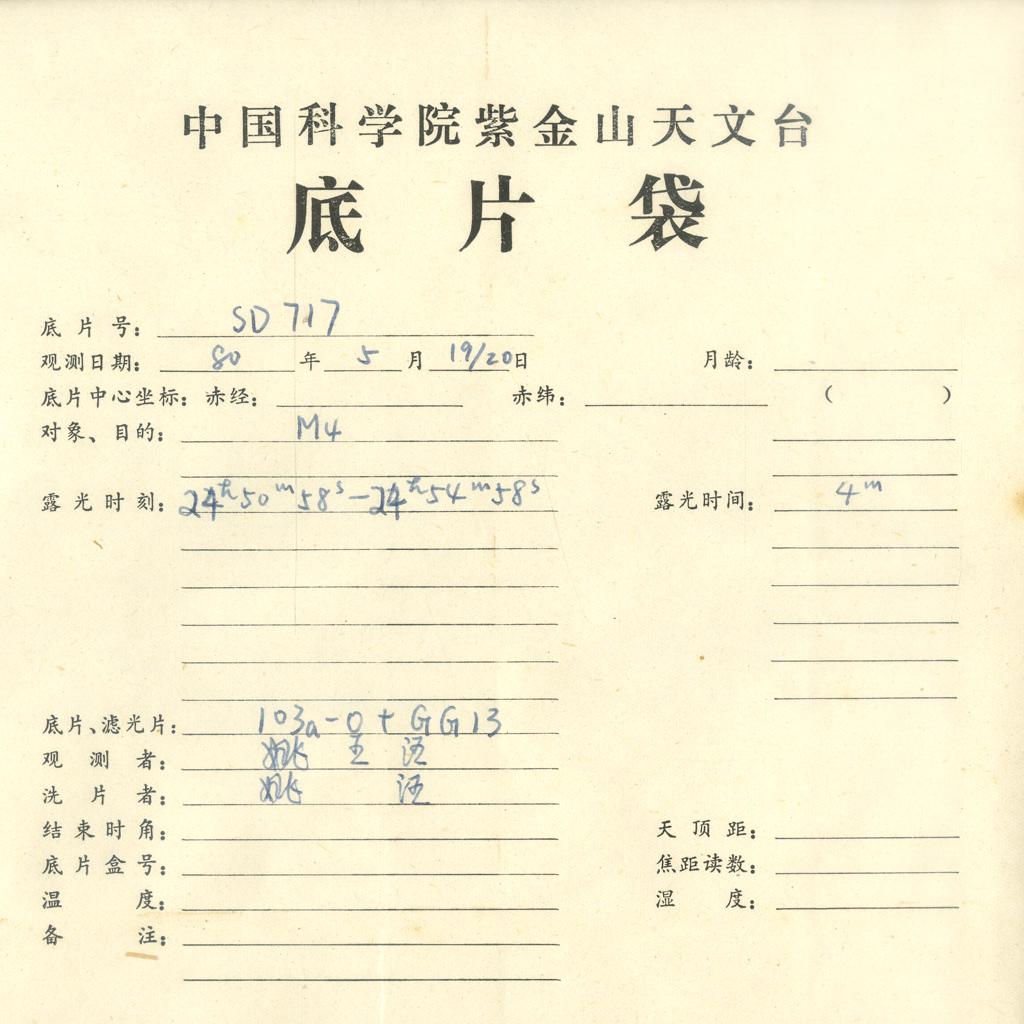 中国科学院紫金山天文台
底片袋
底片号： SD 717
观测日期： 80 年 5 月 19/20日 月龄：
底片中心坐标：赤经： 赤纬： （ ）
对象、目的： M4
露光时刻： 24h50m58s－24h54m58s 露光时间： 4m
底片、滤光片： 103a-O + GG13
观测者： 姚 王 汪
洗片者： 姚 汪
结束时角： 天顶距：
底片盒号： 焦距读数：
温度： 湿度：
备注：